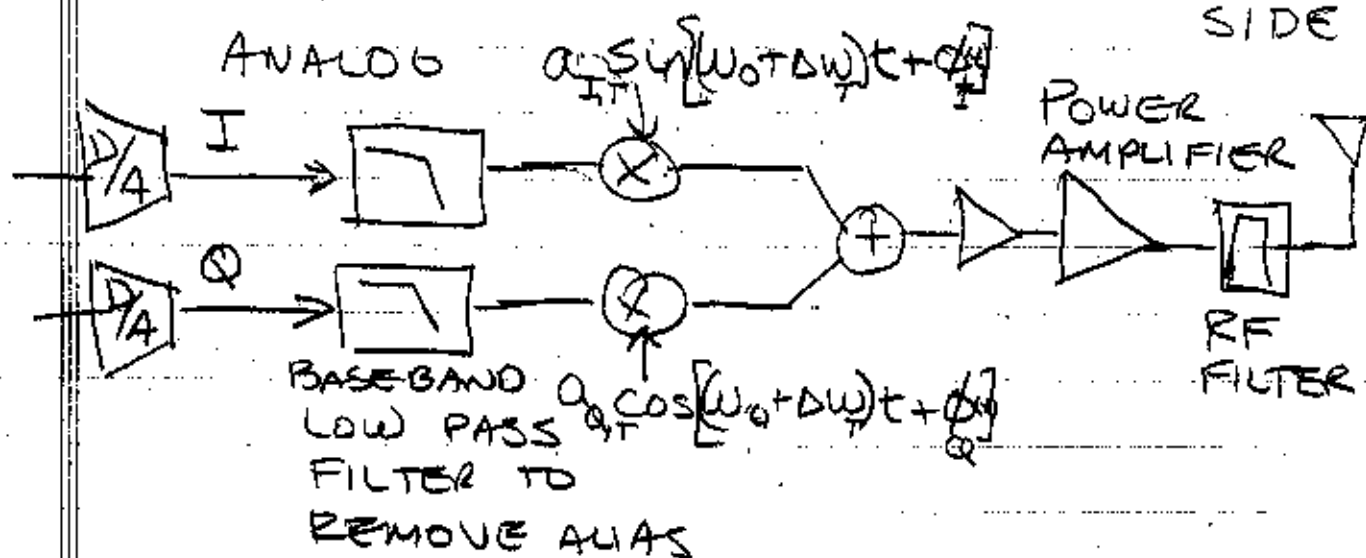 SIDE
ANALOG
a_{I,T} sin[(ω₀+Δω_T)t+ϕ_I]
POWER
AMPLIFIER
D/A
I
X
+
D/A
Q
X
RF
FILTER
BASEBAND
LOW PASS
FILTER TO
REMOVE ALIAS
a_{Q,T} cos[(ω₀+Δω_T)t+ϕ_Q]